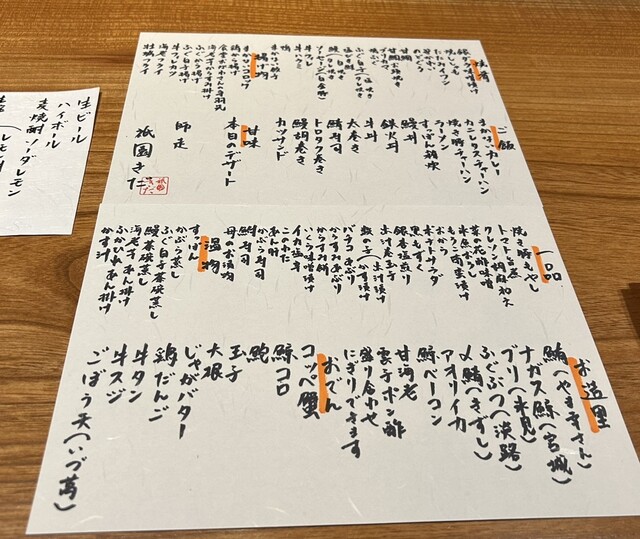 一品
焼き鯖もやし
トマト旨煮
クレソン胡麻和え
菜の花酢味噌
氷魚ポン酢
もろこ南蛮漬け
おから
ポテトサラダ
黒もずく
銀杏塩煎り
出汁巻玉子
数の子(出汁漬け)
バチコあぶり
からすみあぶり
からすみ餅
いくら味噌漬け
イカ塩辛
このわた
あん肝
かぶら寿司
鯖寿司
母のお漬物
温物
すっぽん
かぶら蒸し
ふぐ白子茶碗蒸し
鰻茶碗蒸し
海老芋あん掛け
ふかひれあん掛け
かす汁
お造里
鮪(やま幸さん)
ナガス鯨(宮城)
ブリ(氷見)
ふぐぶつ(淡路)
〆鯖(きずし)
アオリイカ
鯨ベーコン
甘海老
雲子ポン酢
盛り合わせ
にぎりできます
おでん
コッペ蟹
鯨コロ
鮑
玉子
大根
じゃがバター
鶏だんご
牛タン
牛スジ
ごぼう天(いづ萬)
焼肴
たたみいわし
甘鯛
鴨
揚げ物
まかないコロッケ
鶏から揚げ
ふぐから揚げ
牛フィレカツ
海老フライ
牡蠣フライ
ご飯
まかないカレー
カニレタスチャーハン
焼き豚チャーハン
ラーメン
すっぽん雑炊
鰻丼
鉄火丼
牛丼
太巻き
鯖寿司
トロタク巻き
鰻胡巻き
カツサンド
甘味
本日のデザート
師走
祇園きた
生ビール
ハイボール
麦焼酎ソーダレモン